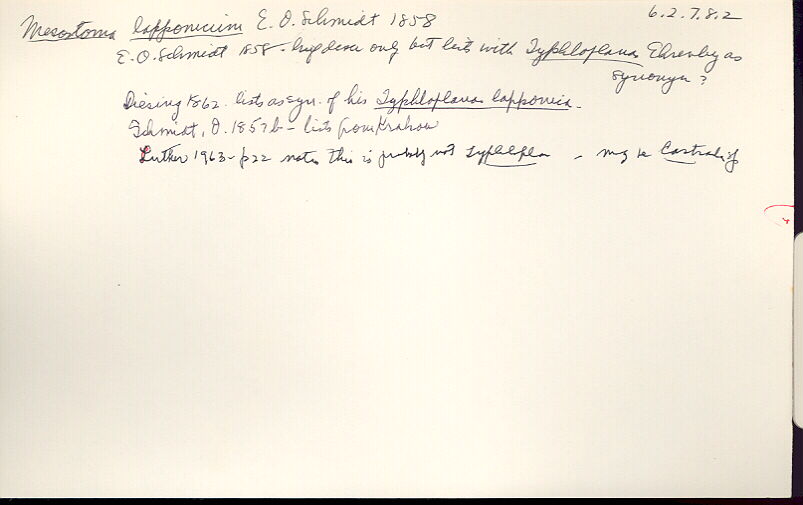 Mesostoma lapponicum E. O. Schmidt 1858 6.2.7.8.2
E. O. Schmidt 1858 - only but lists with Typhloplana Ehrenbg as
synonym ?
Diesing 1862. lists as syn. of his Typhloplana lapponica.
Schmidt, O. 1857b - lists from Krakow
Luther 1963 - p22 notes this is probly not Typhlopla - may be Castrada sp